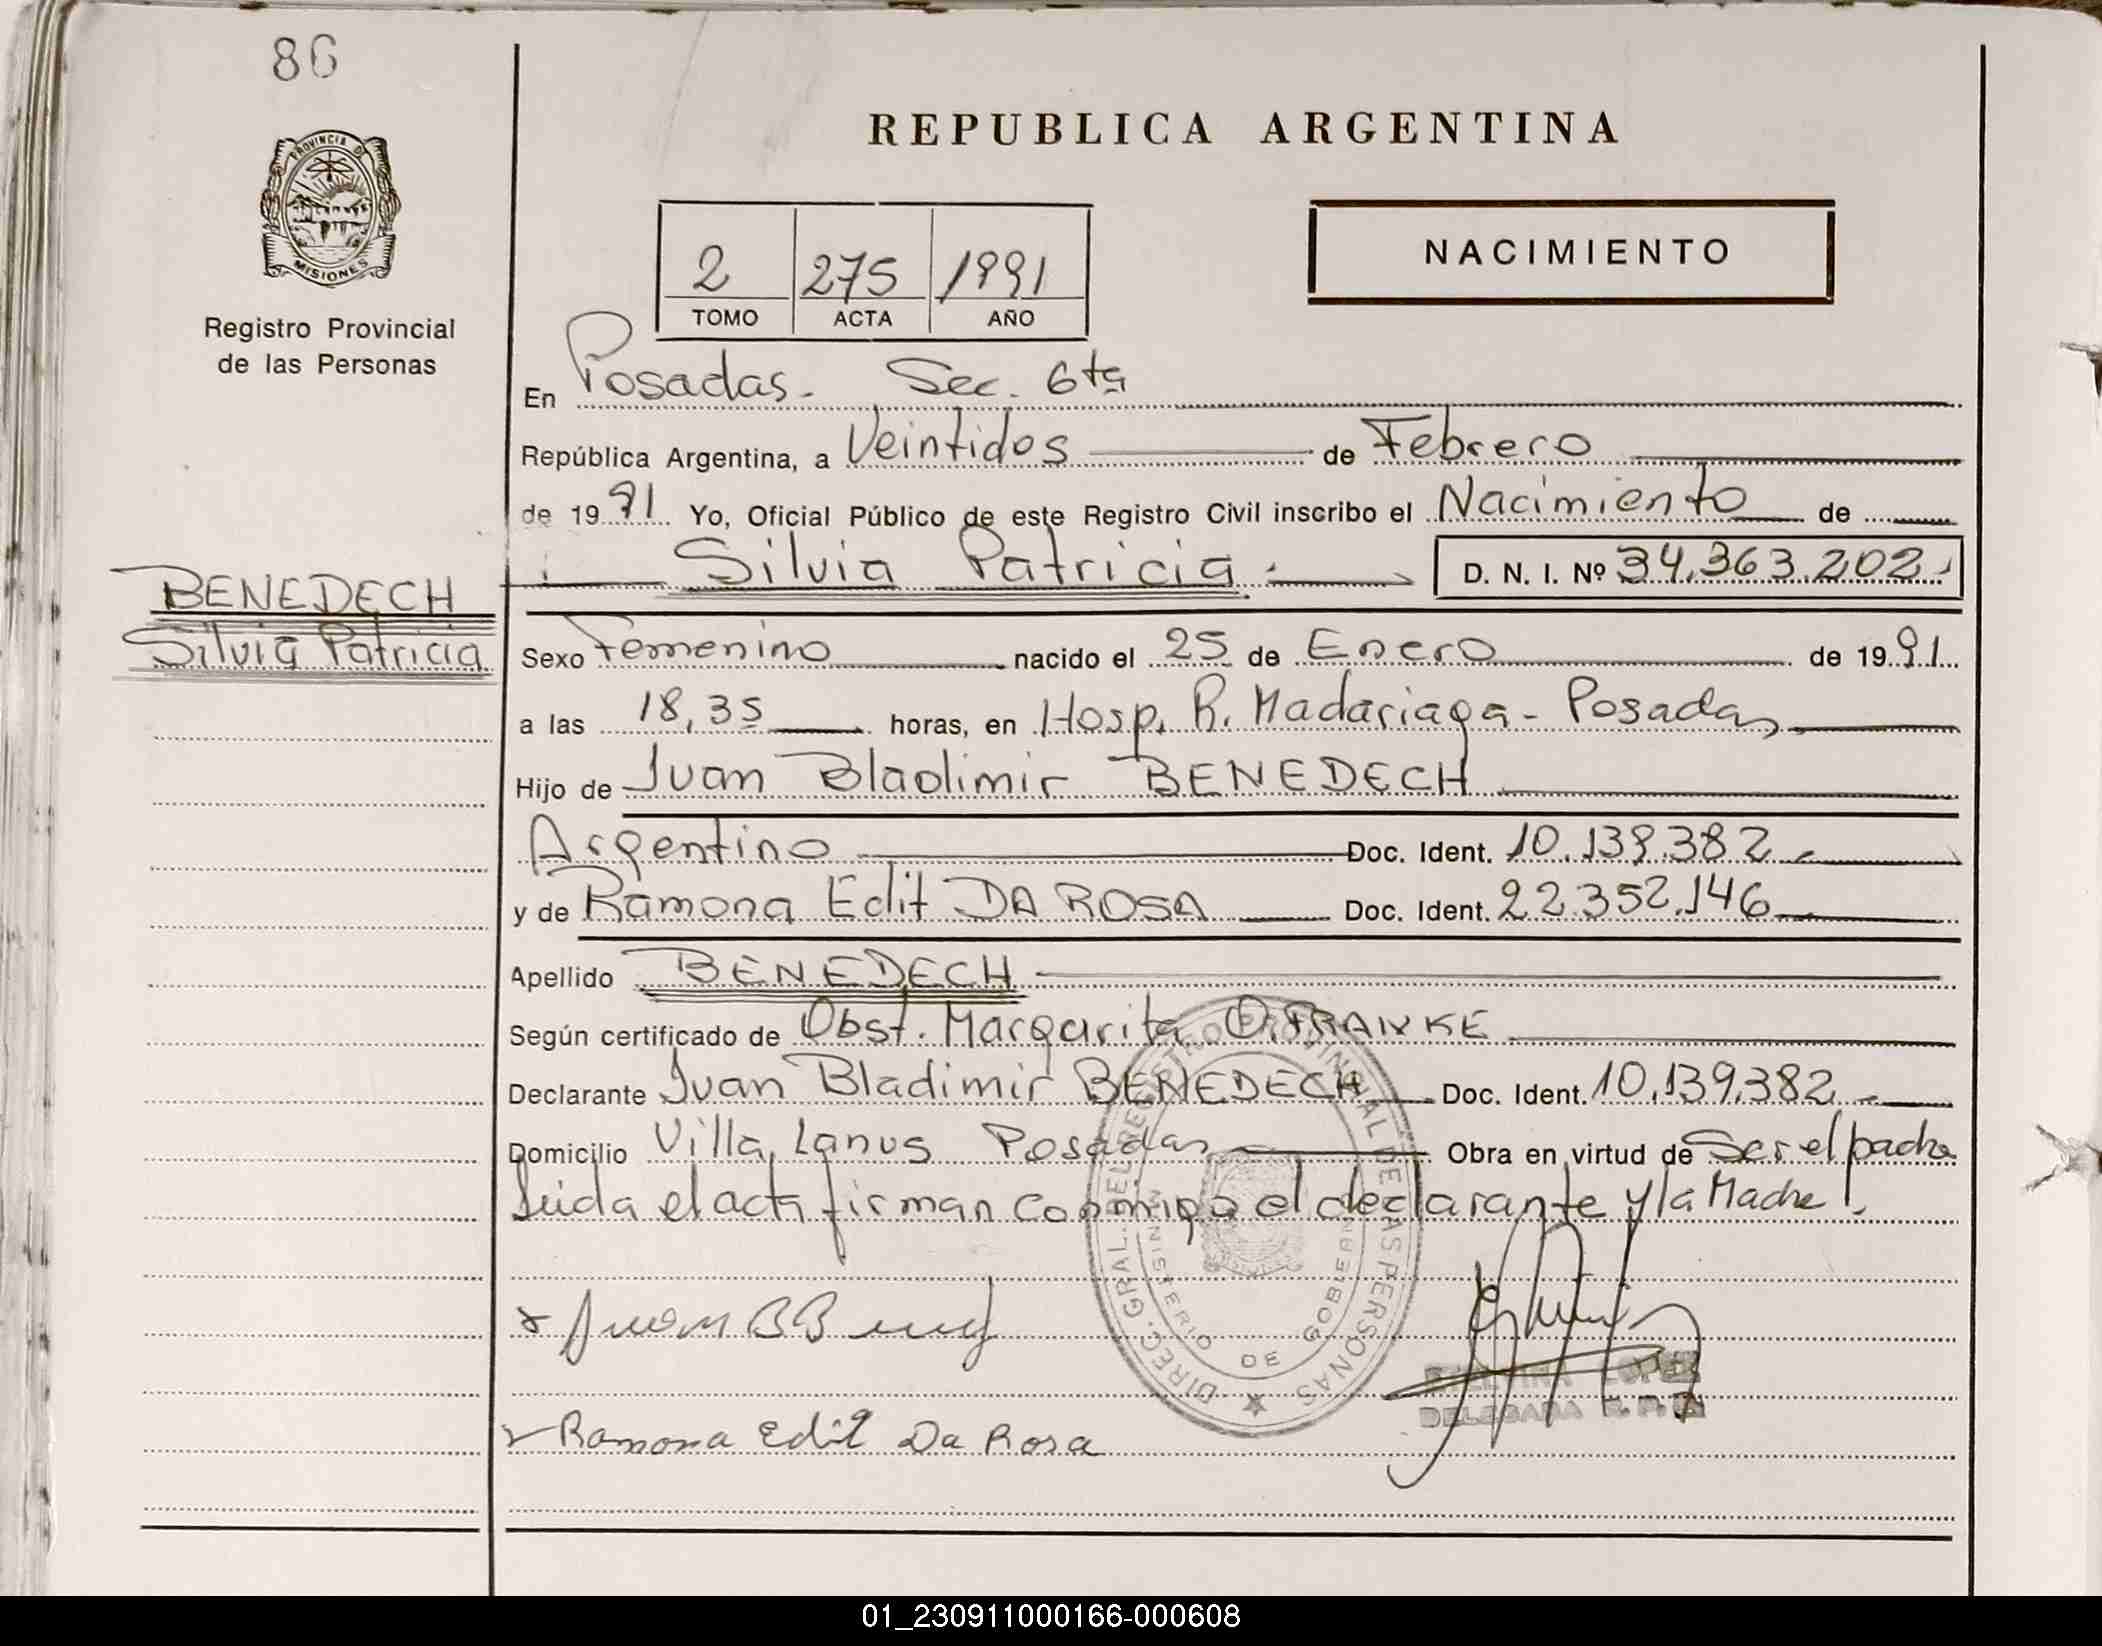 86
REPUBLICA ARGENTINA
PROVINCIA DE
MISIONES
Registro Provincial
de las Personas
2 275 1991
TOMO ACTA AÑO
NACIMIENTO
En Posadas. Sec. 6ta
República Argentina, a Veintidos de Febrero
de 1991 Yo, Oficial Público de este Registro Civil inscribo el Nacimiento de
Silvia Patricia D. N. I. Nº 34.363.202
BENEDECH
Silvia Patricia
Sexo Femenino nacido el 25 de Enero de 1991
a las 18,35 horas, en Hosp. R. Madariaga - Posadas
Hijo de Juan Bladimir BENEDECH
Argentino Doc. Ident. 10.139.382
y de Ramona Edit DA ROSA Doc. Ident. 22.352.146
Apellido BENEDECH
Según certificado de Obst. Margarita O. FRANKE
Declarante Juan Bladimir BENEDECH Doc. Ident. 10.139.382
Domicilio Villa Lanus Posadas Obra en virtud de Ser el padre
Leida el acta firman conmigo el declarante y la Madre
DIREC. GRAL. DEL REGISTRO PROVINCIAL DE LAS PERSONAS
MINISTERIO DE GOBIERNO
Juan B B
LOPEZ
DELEGADA R. P.
Ramona Edit Da Rosa
01_230911000166-000608